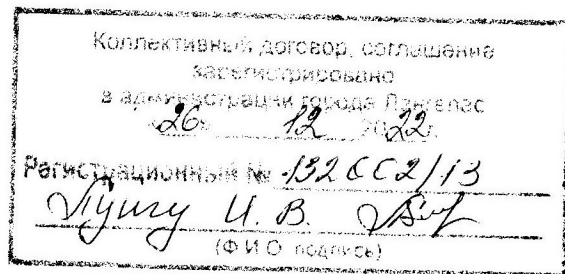 Коллективный договор, соглашение
зарегистрировано
в администрации города Лангепас
«26» 12 2022 г.
Регистрационный №
И. В.
(Ф И О подпись)